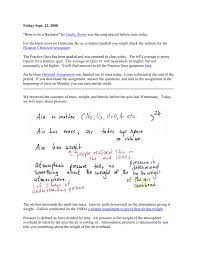 Friday Sept. 12, 2008
"Born to be a Bachelor" by
was the song played before class today.
For the latest news on Hurricane Ike as it makes landfall you might check the website for the
Houston Chronicle newspaper.
The Practice Quiz has been graded and was returned in class today. The 66% average is pretty
typical for a Practice Quiz. The average on Quiz #1 will most likely be higher, but not
necessarily a lot higher. You'll find answers to all the Practice Quiz questions here
An In-class Optional Assignment was handed out in class today. It was collected at the end of the
period. If you download the assignment, answer the questions, and turn in the assignment at the
beginning of class on Monday you can earn partial credit.
We reviewed the concepts of mass, weight, and density before the quiz last Wednesday. Today,
we will learn about pressure.
Air is matter (N₂, O₂, H₂O, etc)
Air has mass, air takes up space
or volume
Air has weight
people realized this in
the mid 1600s
atmospheric pressure tells
us something about the
weight of the atmosphere
overhead
1 of 2 ways of
understanding pressure
pressure is
determined
by the
weight of
the air
overhead
The earth has an atmosphere that has mass. Gravity pulls downward on the atmosphere giving it
weight. Galileo conducted in the 1600s a simple experiment to prove that air has weight.
Pressure is defined as force divided by area. Air pressure is the weight of the atmosphere
overhead divided by the area the air is resting on. Atmospheric pressure is determined by and